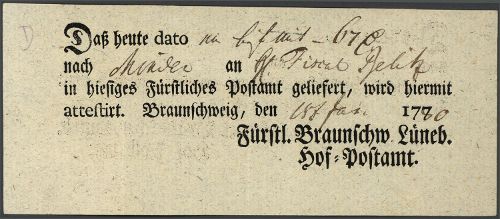 D
Daß heute dato
nach Minden an H. Fiscal
in hiesiges Fürstliches Postamt geliefert, wird hiermit
attestirt. Braunschweig, den 18t Jan. 1780
Fürstl. Braunschw. Lüneb.
Hof-Postamt.